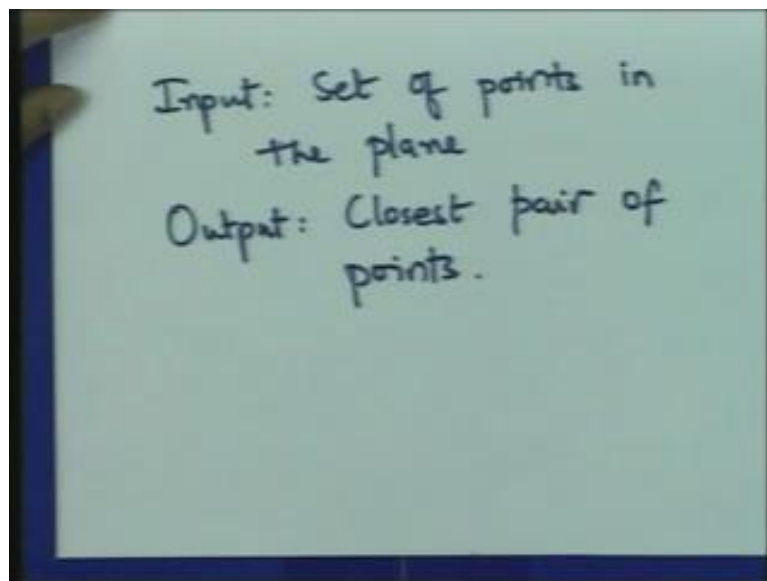 Input: Set of points in
the plane
Output: Closest pair of
points.